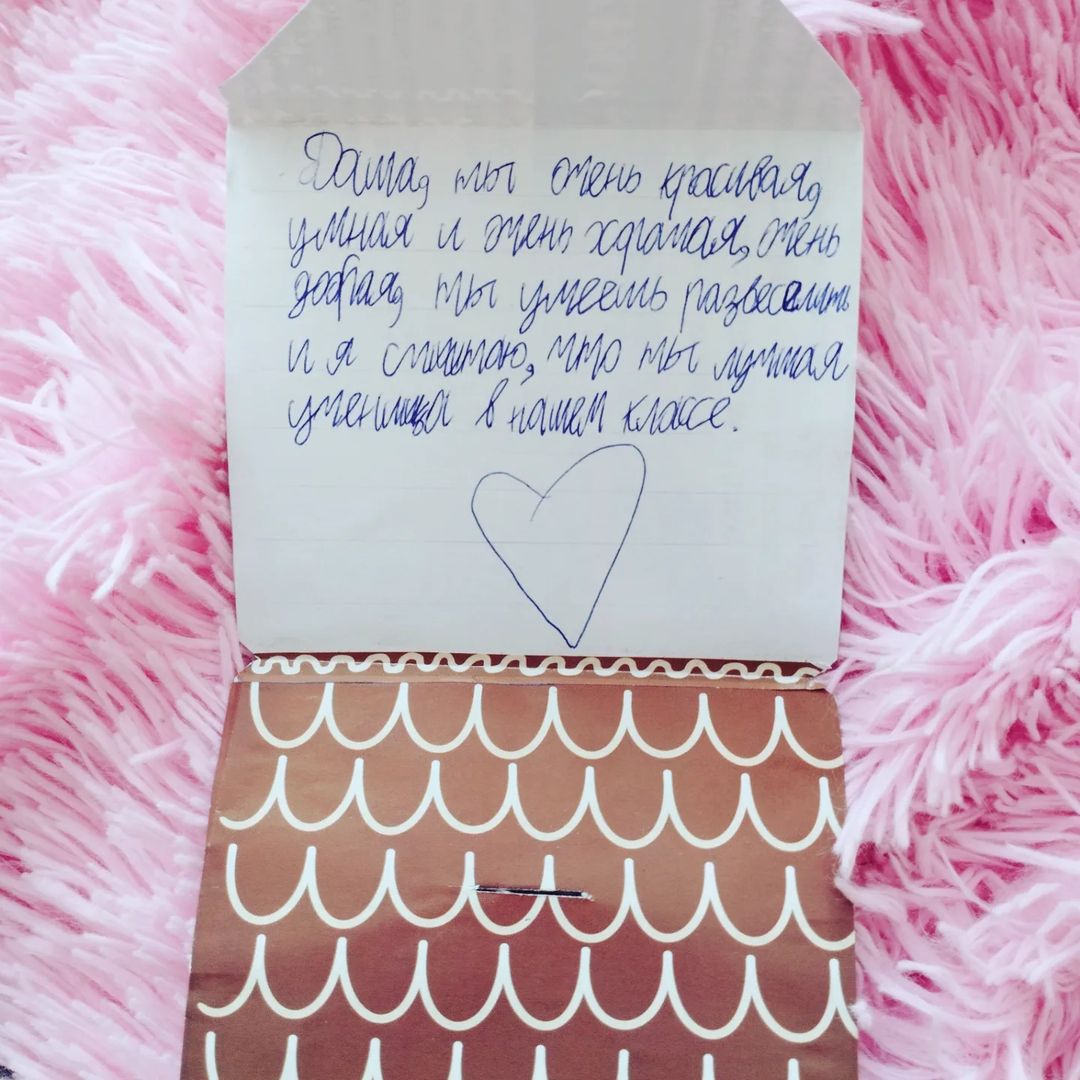 Даша, ты очень красивая,
умная и очень хорошая, очень
добрая, ты умеешь развеселить
и я считаю, что ты лучшая
ученица в нашем классе.